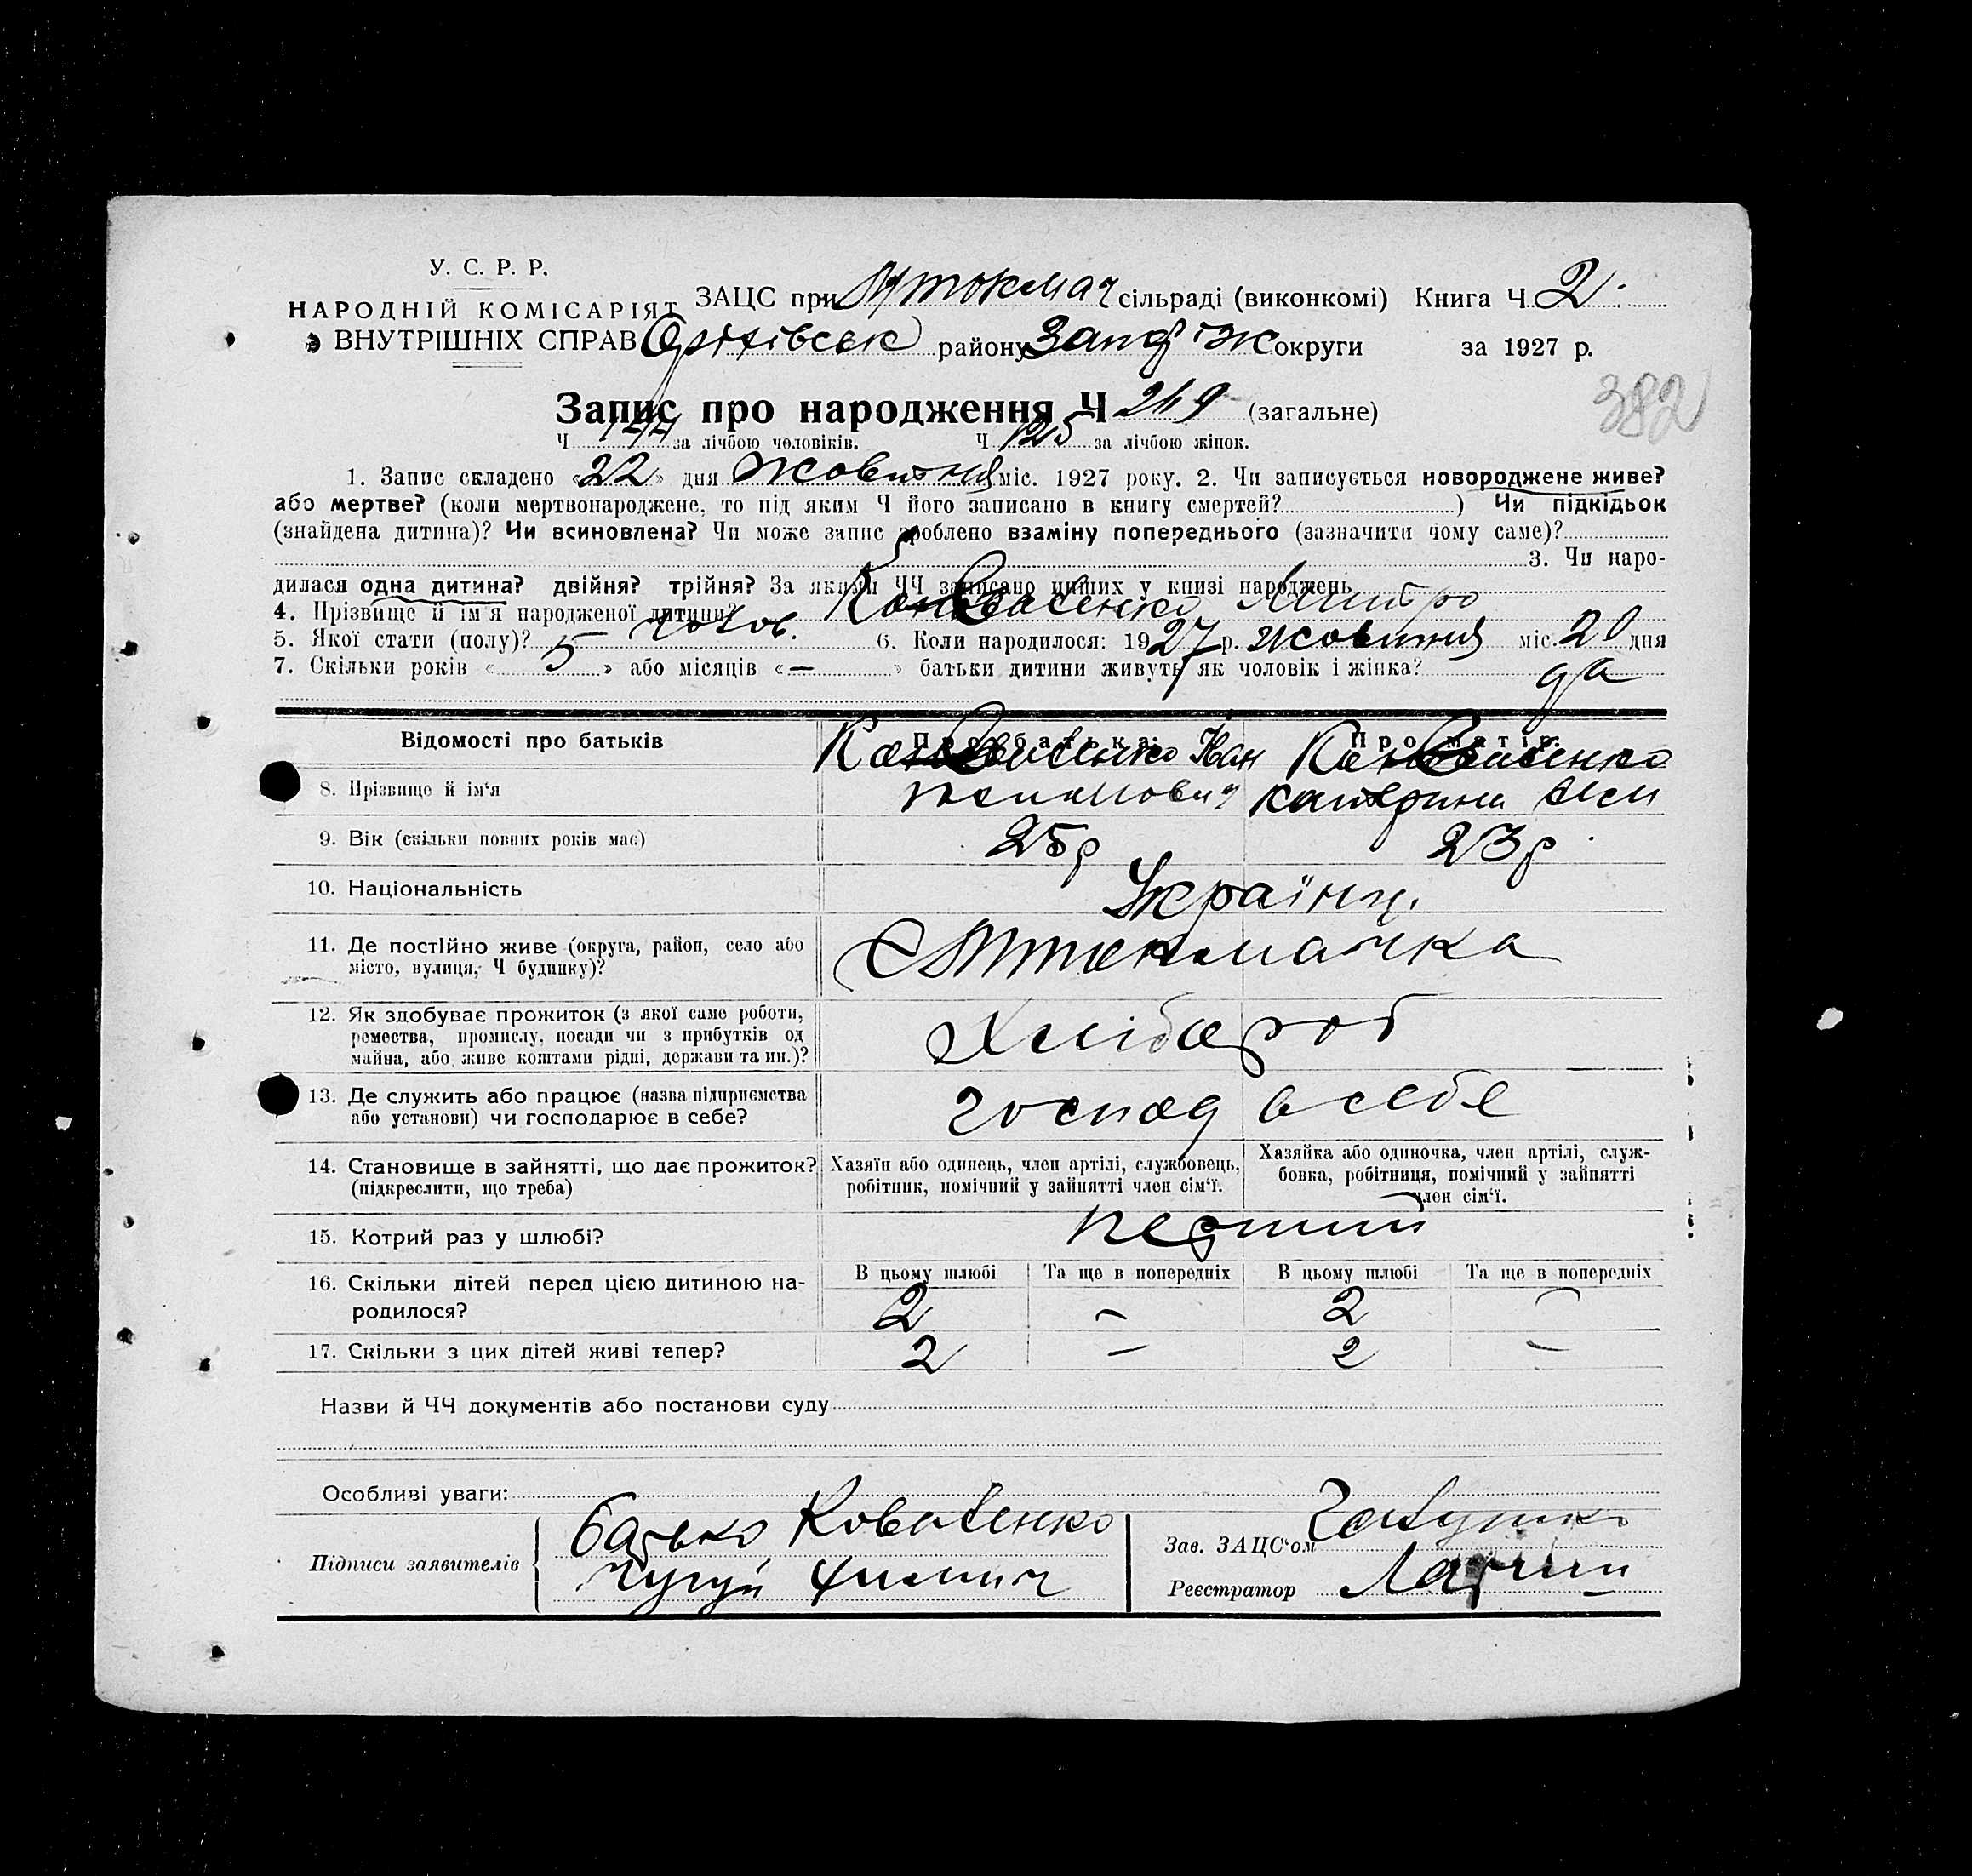 У. С. Р. Р.
НАРОДНІЙ КОМІСАРІЯТ
ВНУТРІШНІХ СПРАВ
ЗАЦС при сільраді (виконкомі) Книга Ч 2
Оріхівськ району Запоріж округи за 1927 р.
382
Запис про народження Ч 249 (загальне)
Ч за лічбою чоловіків. Ч 125 за лічбою жінок.
1. Запис складено «22» дня жовтня міс. 1927 року. 2. Чи записується новороджене живе?
або мертве? (коли мертвонароджене, то під яким Ч його записано в книгу смертей? ) Чи підкідьок
(знайдена дитина)? Чи всиновлена? Чи може запис зроблено взаміну попереднього (зазначити чому саме)?
3. Чи наро-
дилася одна дитина? двійня? трійня? За якими ЧЧ записано инших у книзі народжень
4. Прізвище й ім'я народженої дитини? Дмитро
5. Якої стати (полу)? чолов. 6. Коли народилося: 1927 р. жовтня міс. 20 дня
7. Скільки років « 5 » або місяців « — » батьки дитини живуть як чоловік і жінка? да
Відомості про батьків Про батька: Про матір:
8. Прізвище й ім'я Іван Катерина
9. Вік (скільки повних років має) 25 р 23 р
10. Національність Українц.
11. Де постійно живе (округа, район, село або
місто, вулиця, Ч будинку)?
12. Як здобуває прожиток (з якої саме роботи,
ремества, промислу, посади чи з прибутків од
майна, або живе коштами рідні, держави та ин.)? Хлібороб
13. Де служить або працює (назва підприємства
або установи) чи господарює в себе? господ в себе
14. Становище в зайнятті, що дає прожиток?
(підкреслити, що треба)
Хазяїн або одинець, член артілі, службовець,
робітник, помічний у зайнятті член сім'ї.
Хазяйка або одиночка, член артілі, служ-
бовка, робітниця, помічний у зайнятті
член сім'ї.
15. Котрий раз у шлюбі? перший
16. Скільки дітей перед цією дитиною на-
родилося?
В цьому шлюбі Та ще в попередніх В цьому шлюбі Та ще в попередніх
2 – 2 –
17. Скільки з цих дітей живі тепер? 2 – 2 –
Назви й ЧЧ документів або постанови суду
Особливі уваги:
Підписи заявителів
Батько
Зав. ЗАЦС'ом
Реєстратор